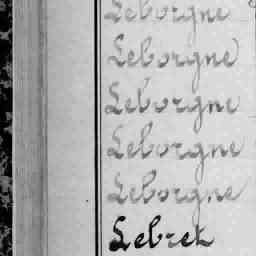 Leborgne
Leborgne
Leborgne
Leborgne
Leborgne
Lebret